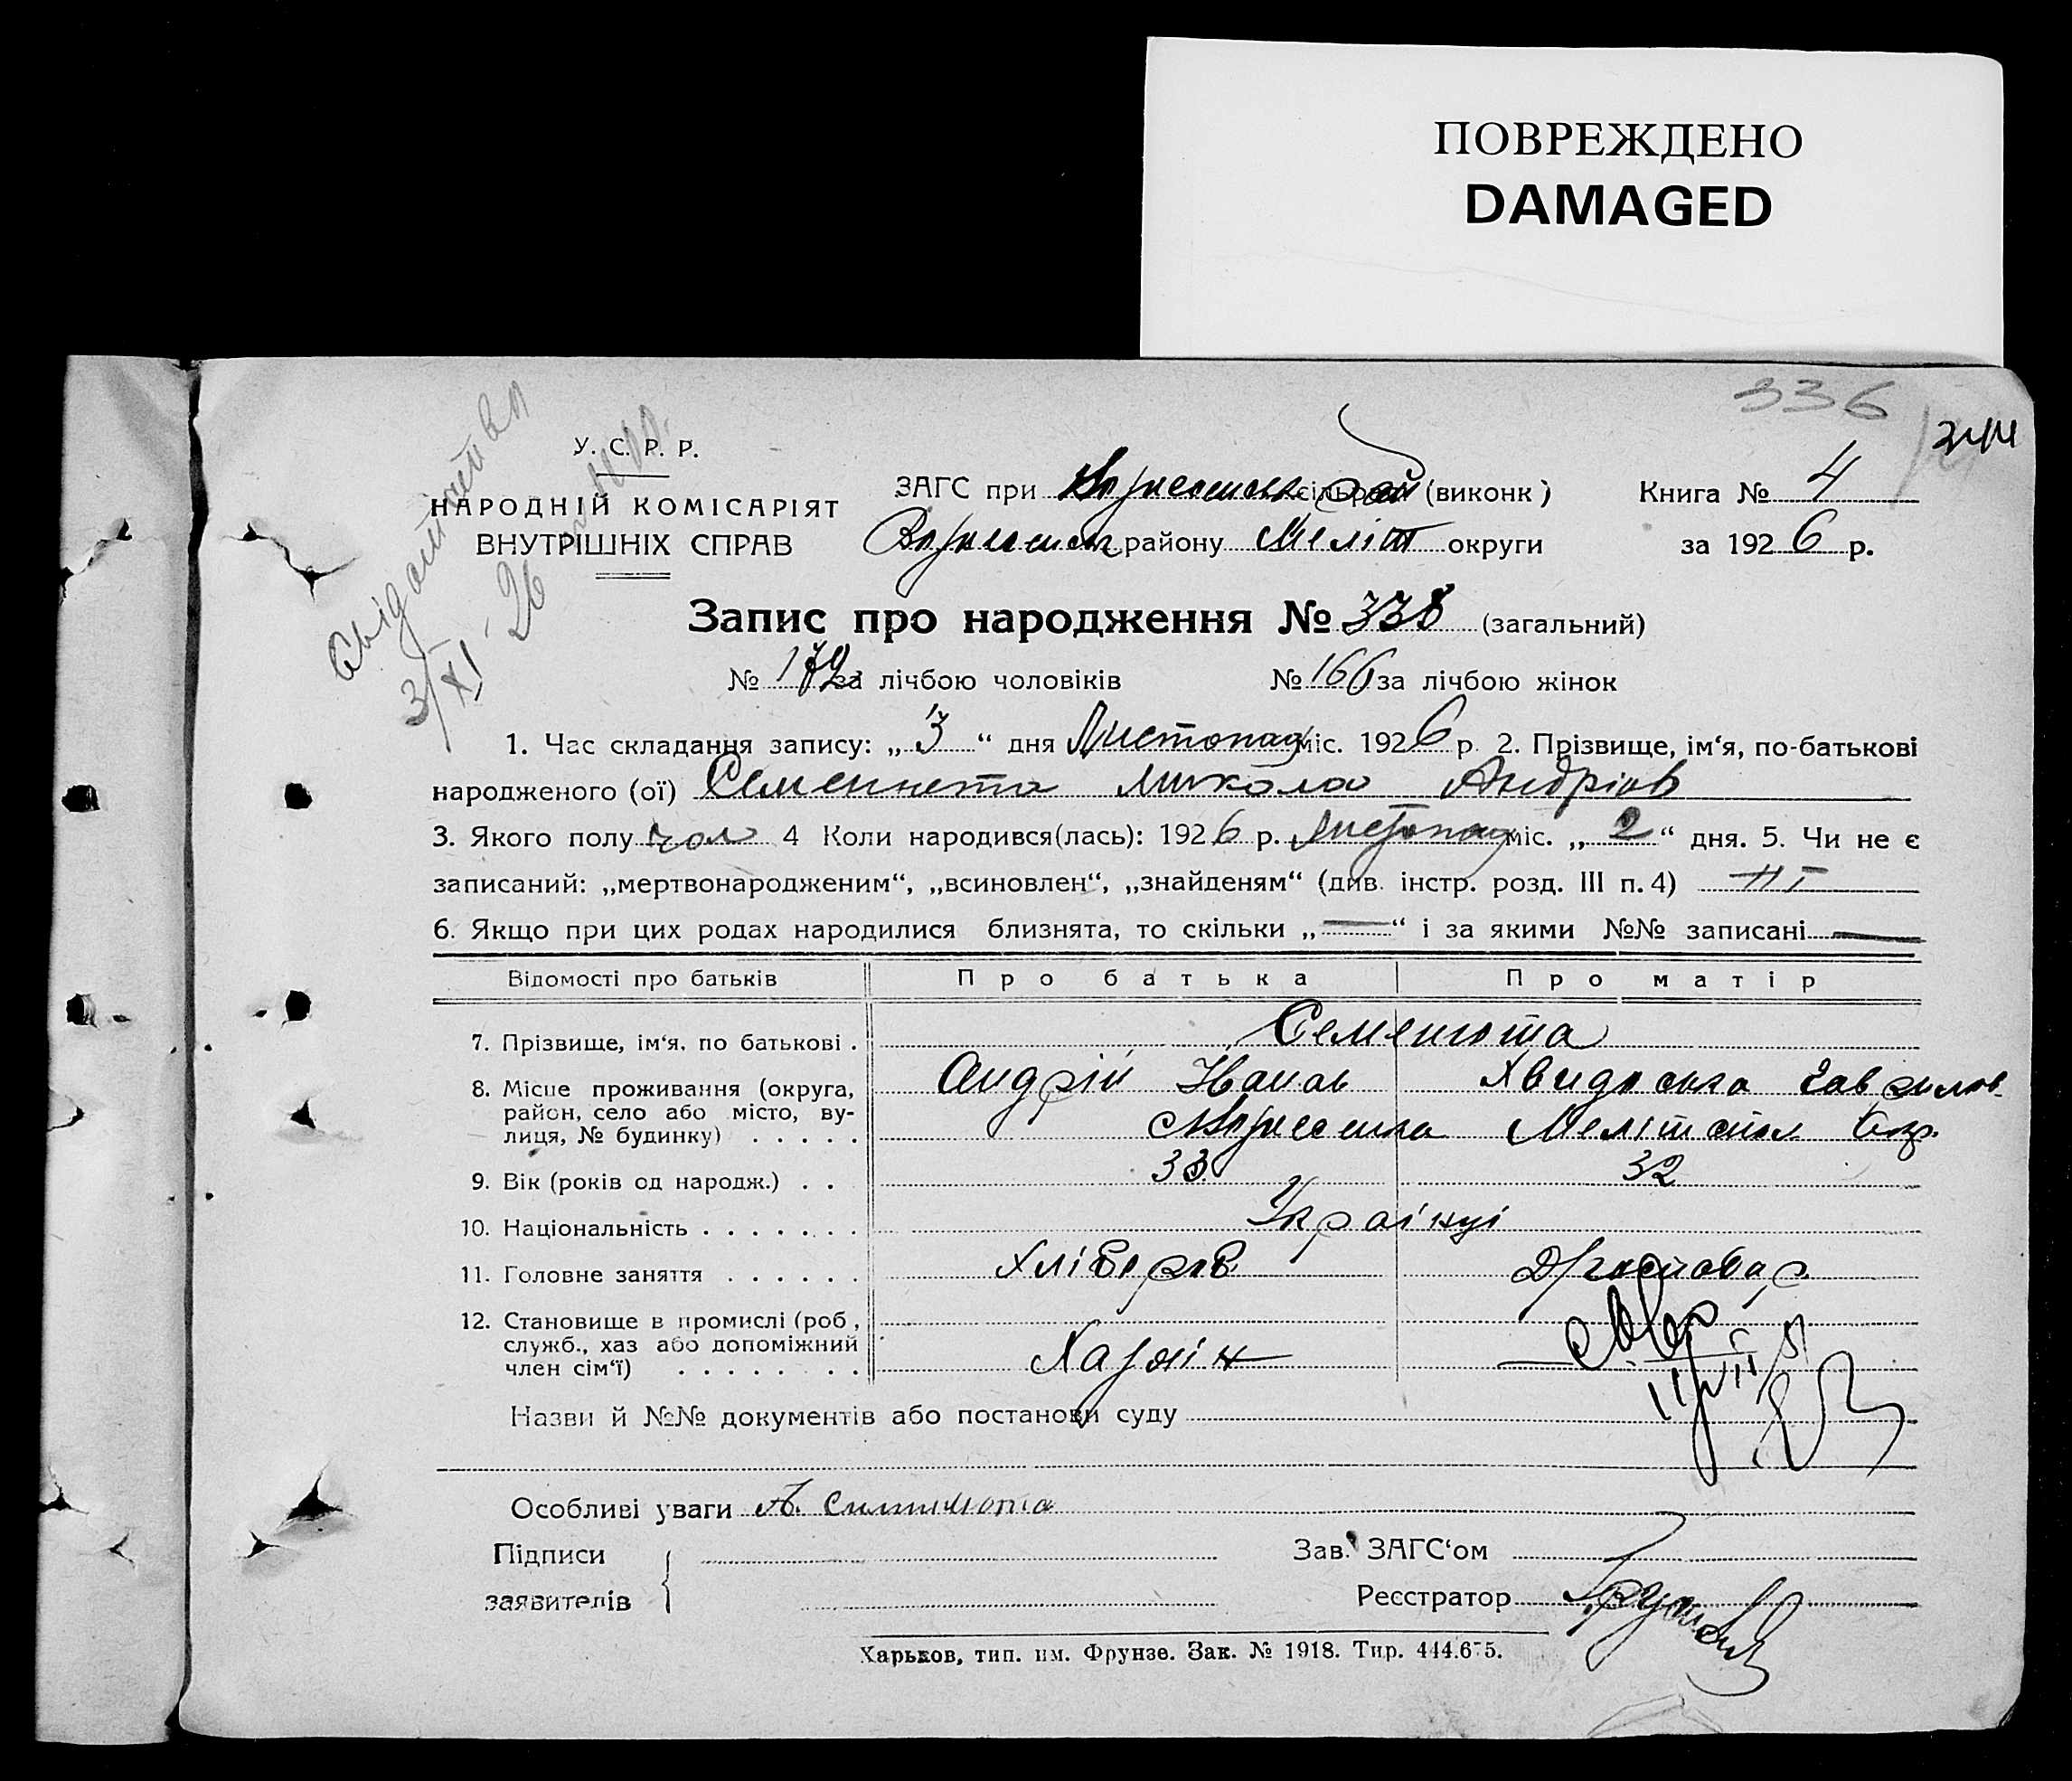 ПОВРЕЖДЕНО
DAMAGED
336
244
Свідоитство
3/XI 26
У. С. Р. Р.
НАРОДНІЙ КОМІСАРІЯТ
ВНУТРІШНІХ СПРАВ
ЗАГС при сільр (виконк)
району Меліт округи
Книга № 4
за 1926 р.
Запис про народження № 338 (загальний)
№ 172 за лічбою чоловіків № 166 за лічбою жінок
1. Час складання запису: „3“ дня Листопад міс. 1926 р. 2. Прізвище, ім‘я, по-батькові
народженого (ої) Семенюта Микола Андріов
3. Якого полу чол 4 Коли народився(лась): 1926 р. Листопад міс. „2“ дня. 5. Чи не є
записаний: „мертвонародженим“, „всиновлен“, „знайденям“ (див. інстр. розд. III п. 4) ні
6. Якщо при цих родах народилися близнята, то скільки „—“ і за якими №№ записані —
Відомості про батьків Про батька Про матір
7. Прізвище, ім‘я, по батькові . Семенюта
Андрій Іванов
8. Місце проживання (округа,
район, село або місто, ву-
лиця, № будинку) . . . . .
9. Вік (років од народж.) . . 33 32
10. Національність . . . . . . . Українці
11. Головне заняття . . . . . . Хлібороб
12. Становище в промислі (роб,
служб., хаз або допоміжний
член сім‘ї) . . . . . . . Хазяїн —
Назви й №№ документів або постанови суду
Особливі уваги А.
Підписи
заявителів
Зав. ЗАГС‘ом
Реєстратор
Харьков, тип. им. Фрунзе. Зак. № 1918. Тир. 444.675.